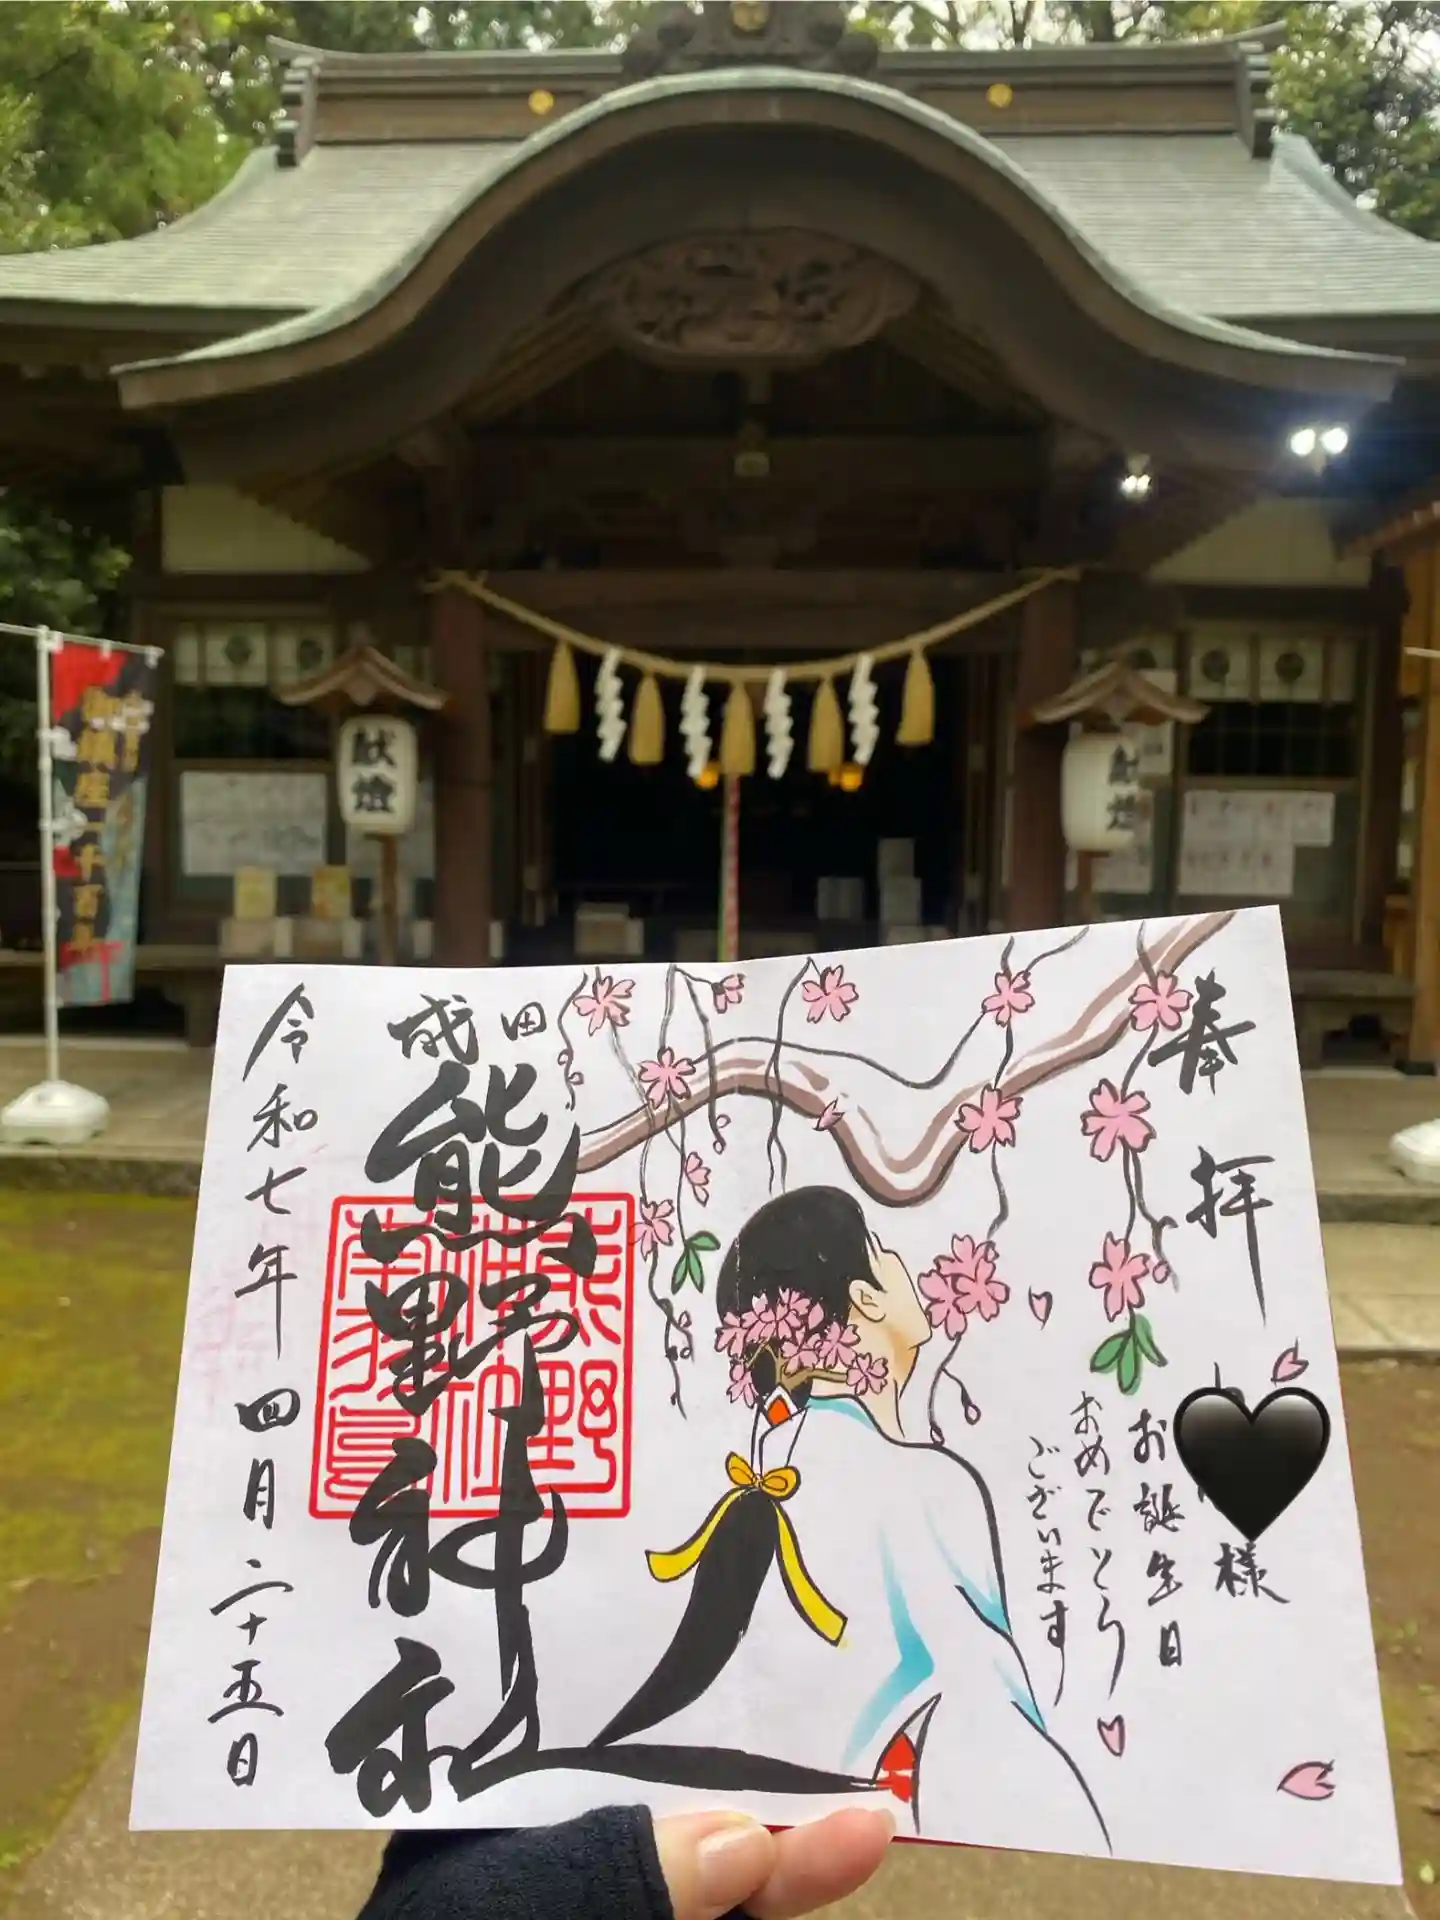 奉拝
様
お誕生日
おめでとう
ございます
成田
熊野神社
令和七年四月二十五日
献燈
献燈
御鎮座一千百年